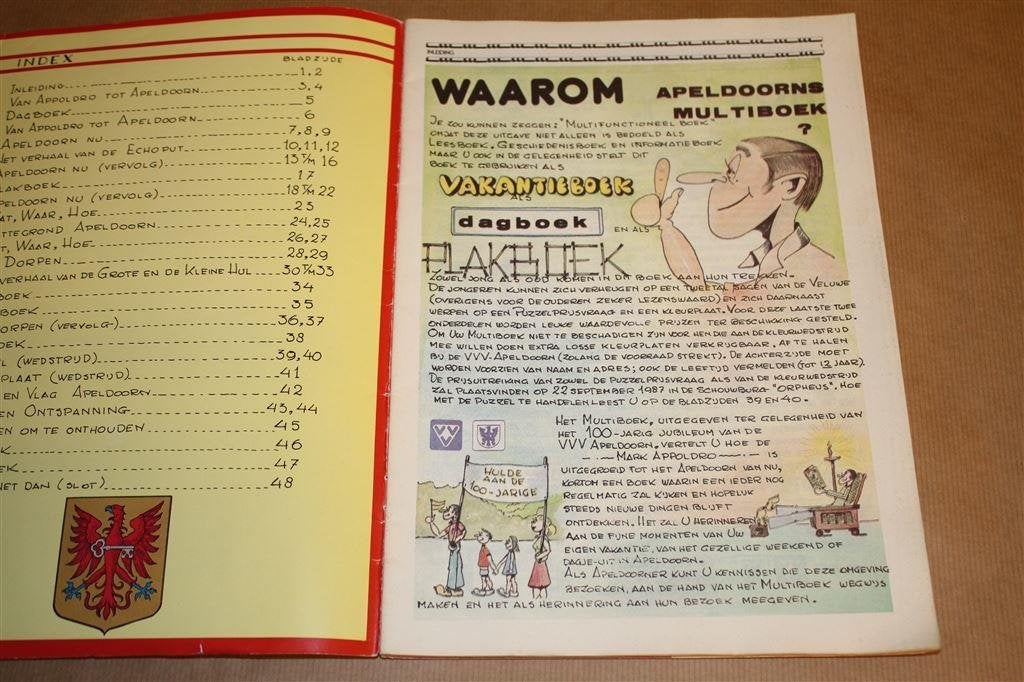 INDEX
BLADZIJDE
INLEIDING 1,2
VAN APPOLDRO TOT APELDOORN 3,4
DAGBOEK 5
VAN APPOLDRO TOT APELDOORN 6
APELDOORN NU 7,8,9
HET VERHAAL VAN DE ECHOPUT 10,11,12
APELDOORN NU (VERVOLG) 13 T/M 16
LAKBOEK 17
PELDOORN NU (VERVOLG) 18 T/M 22
AT, WAAR, HOE 23
TTEGROND APELDOORN 24,25
T, WAAR, HOE 26,27
DORPEN 28,29
VERHAAL VAN DE GROTE EN DE KLEINE HUL 30 T/M 33
BOEK 34
BOEK 35
ORPEN (VERVOLG) 36,37
OEK 38
L (WEDSTRIJD) 39,40
PLAAT (WEDSTRIJD) 41
EN VLAG APELDOORN 42
EN ONTSPANNING 43,44
EN OM TE ONTHOUDEN 45
K 46
EK 47
ET DAN (SLOT) 48
INLEIDING
WAAROM APELDOORNS
MULTIBOEK
?
JE ZOU KUNNEN ZEGGEN: "MULTIFUNCTIONEEL BOEK"
OMDAT DEZE UITGAVE NIET ALLEEN IS BEDOELD ALS
LEESBOEK, GESCHIEDENISBOEK EN INFORMATIEBOEK
MAAR U OOK IN DE GELEGENHEID STELT DIT
BOEK TE GEBRUIKEN ALS
VAKANTIEBOEK
ALS
dagboek
EN ALS
PLAKBOEK
ZOWEL JONG ALS OUD KOMEN IN DIT BOEK AAN HUN TREKKEN.
DE JONGEREN KUNNEN ZICH VERHEUGEN OP EEN TWEETAL SAGEN VAN DE VELUWE
(OVERIGENS VOOR DE OUDEREN ZEKER LEZENSWAARD) EN ZICH DAARNAAST
WERPEN OP EEN PUZZELPRIJSVRAAG EN EEN KLEURPLAAT. VOOR DEZE LAATSTE TWEE
ONDERDELEN WORDEN LEUKE WAARDEVOLLE PRIJZEN TER BESCHIKKING GESTELD.
OM UW MULTIBOEK NIET TE BESCHADIGEN ZIJN VOOR HEN DIE AAN DE KLEURWEDSTRIJD
MEE WILLEN DOEN EXTRA LOSSE KLEURPLATEN VERKRIJGBAAR, AF TE HALEN
BIJ DE VVV-APELDOORN (ZOLANG DE VOORRAAD STREKT). DE ACHTERZIJDE MOET
WORDEN VOORZIEN VAN NAAM EN ADRES; OOK DE LEEFTIJD VERMELDEN (TOT 12 JAAR).
DE PRIJSUITREIKING VAN ZOWEL DE PUZZELPRIJSVRAAG ALS VAN DE KLEURWEDSTRIJD
ZAL PLAATSVINDEN OP 22 SEPTEMBER 1987 IN DE SCHOUWBURG "ORPHEUS". HOE
MET DE PUZZEL TE HANDELEN LEEST U OP DE BLADZIJDEN 39 EN 40.
VVV
HET MULTIBOEK, UITGEGEVEN TER GELEGENHEID VAN
HET 100-JARIG JUBILEUM VAN DE
VVV APELDOORN, VERTELT U HOE DE
MARK APPOLDRO IS
UITGEGROEID TOT HET APELDOORN VAN NU,
KORTOM EEN BOEK WAARIN EEN IEDER NOG
REGELMATIG ZAL KIJKEN EN HOPELIJK
STEEDS NIEUWE DINGEN BLIJFT
ONTDEKKEN. HET ZAL U HERINNEREN
AAN DE FIJNE MOMENTEN VAN UW
EIGEN VAKANTIE, VAN HET GEZELLIGE WEEKEND OF
DAGJE-UIT IN APELDOORN.
ALS APELDOORNER KUNT U KENNISSEN DIE DEZE OMGEVING
BEZOEKEN, AAN DE HAND VAN HET MULTIBOEK WEGWIJS
MAKEN EN HET ALS HERINNERING AAN HUN BEZOEK MEEGEVEN.
HULDE
AAN DE
100-JARIGE